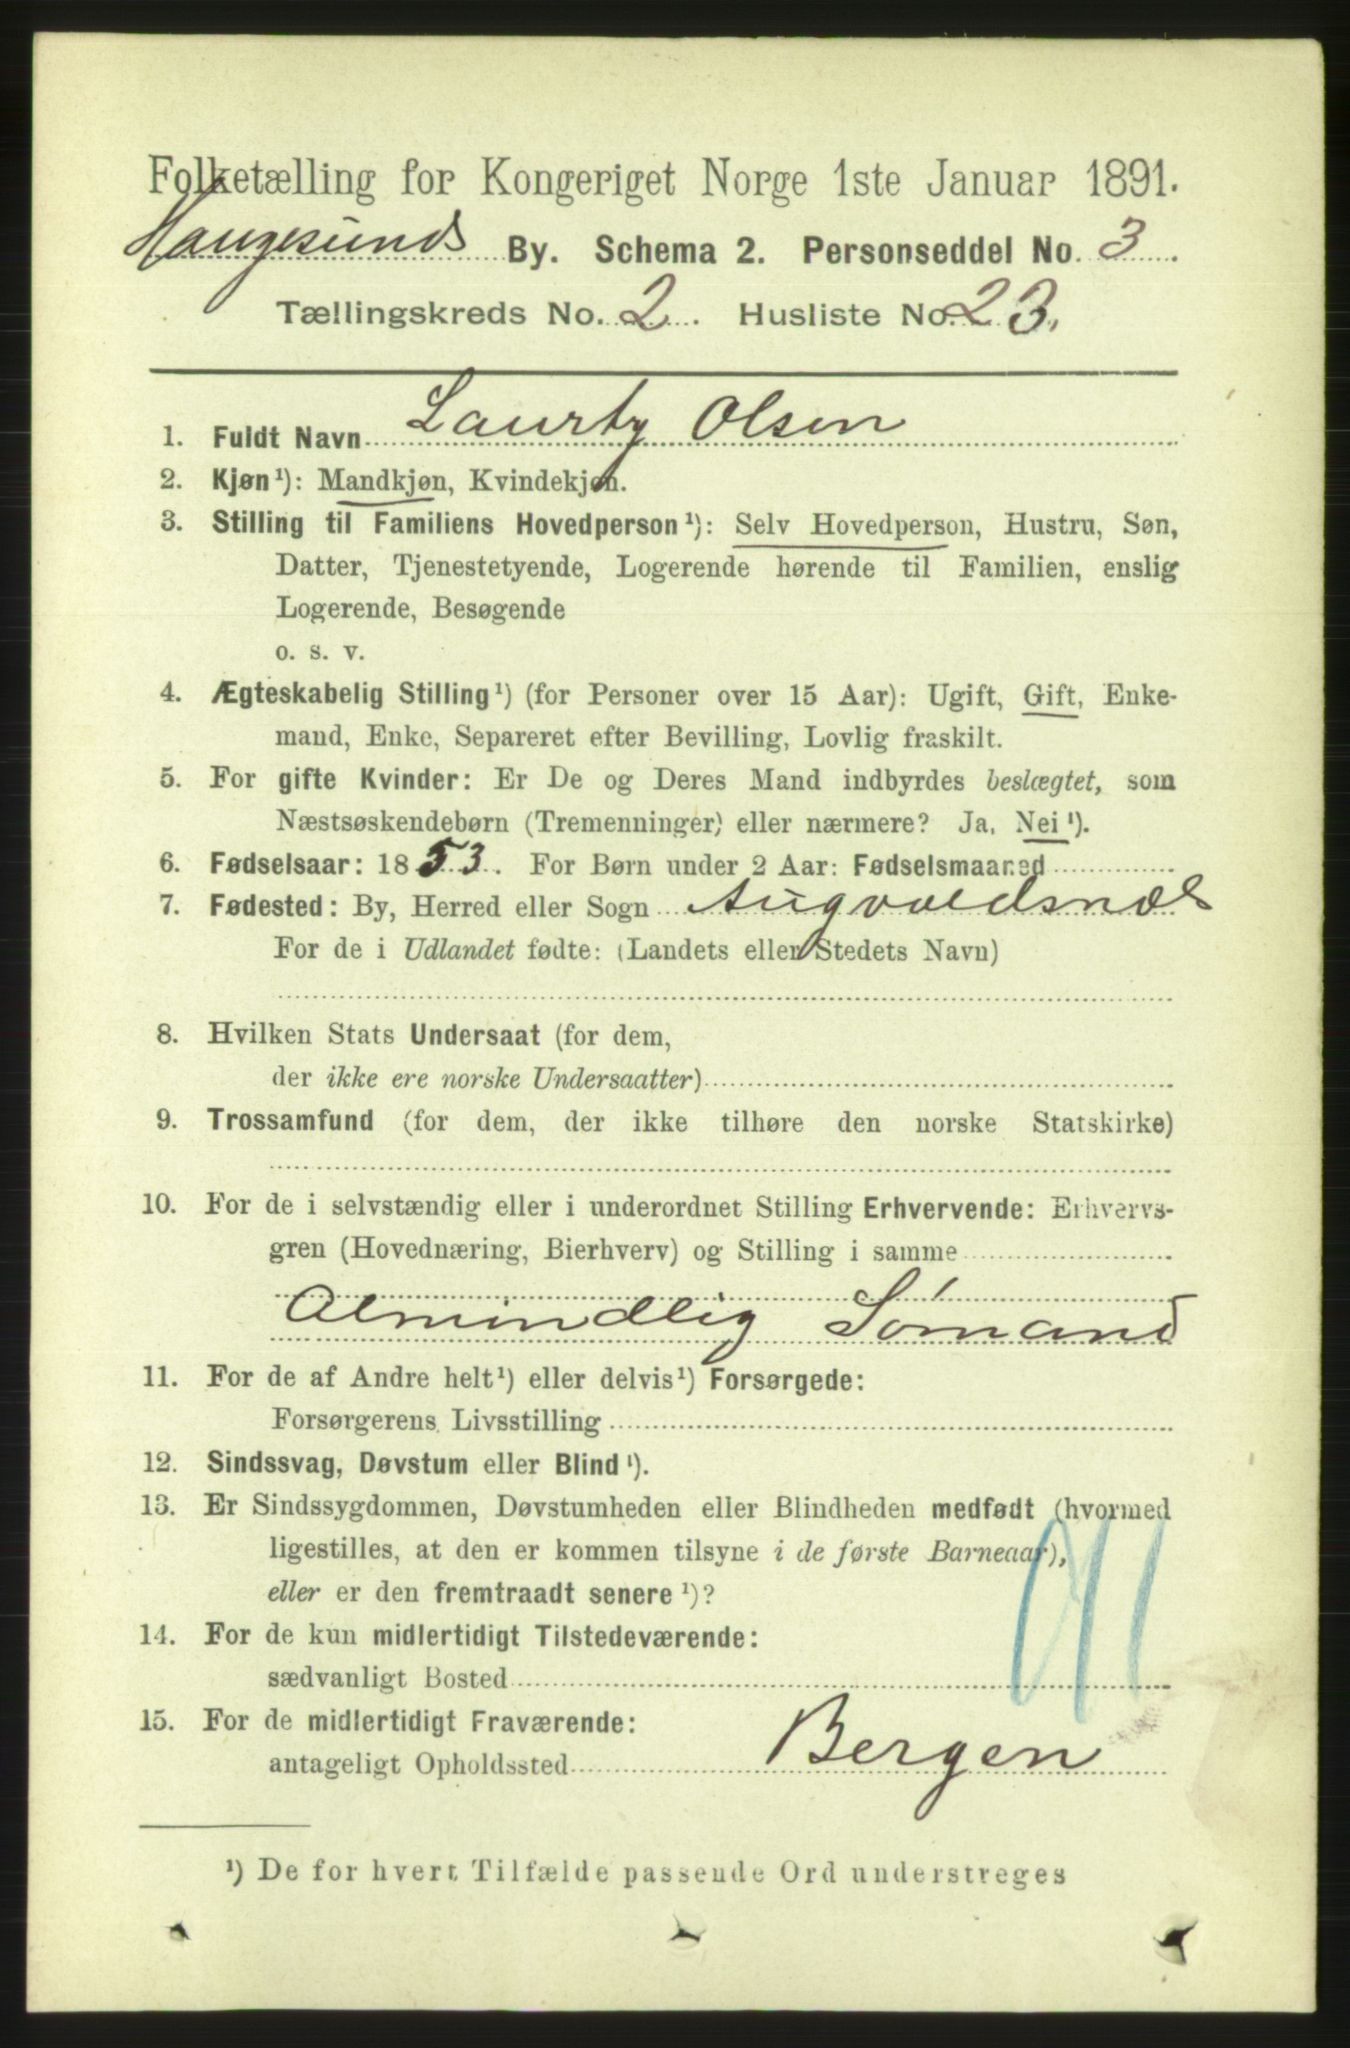 Folketælling for Kongeriget Norge 1ste Januar 1891.
Haugesunds By. Schema 2. Personseddel No. 3
Tællingskreds No. 2. Husliste No. 23.
1. Fuldt Navn Olsen
2. Kjøn¹): Mandkjøn, Kvindekjøn.
3. Stilling til Familiens Hovedperson¹): Selv Hovedperson, Hustru, Søn,
Datter, Tjenestetyende, Logerende hørende til Familien, enslig
Logerende, Besøgende
o. s. v.
4. Ægteskabelig Stilling¹) (for Personer over 15 Aar): Ugift, Gift, Enke-
mand, Enke, Separeret efter Bevilling, Lovlig fraskilt.
5. For gifte Kvinder: Er De og Deres Mand indbyrdes beslægtet, som
Næstsøskendebørn (Tremenninger) eller nærmere? Ja, Nei¹).
6. Fødselsaar: 1853. For Børn under 2 Aar: Fødselsmaaned
7. Fødested: By, Herred eller Sogn Augvaldsnæs
For de i Udlandet fødte: (Landets eller Stedets Navn)
8. Hvilken Stats Undersaat (for dem,
der ikke ere norske Undersaatter)
9. Trossamfund (for dem, der ikke tilhøre den norske Statskirke)
10. For de i selvstændig eller i underordnet Stilling Erhvervende: Erhvervs-
gren (Hovednæring, Bierhverv) og Stilling i samme
Almindlig Sømand
11. For de af Andre helt¹) eller delvis¹) Forsørgede:
Forsørgerens Livsstilling
12. Sindssvag, Døvstum eller Blind¹).
13. Er Sindssygdommen, Døvstumheden eller Blindheden medfødt (hvormed
ligestilles, at den er kommen tilsyne i de første Barneaar),
eller er den fremtraadt senere¹)?
14. For de kun midlertidigt Tilstedeværende:
sædvanligt Bosted
15. For de midlertidigt Fraværende:
antageligt Opholdssted Bergen
¹) De for hvert Tilfælde passende Ord understreges